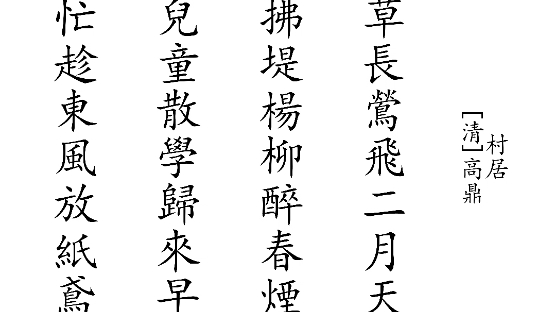 村居
[清]高鼎
草長鶯飛二月天
拂堤楊柳醉春煙
兒童散學歸來早
忙趁東風放紙鳶